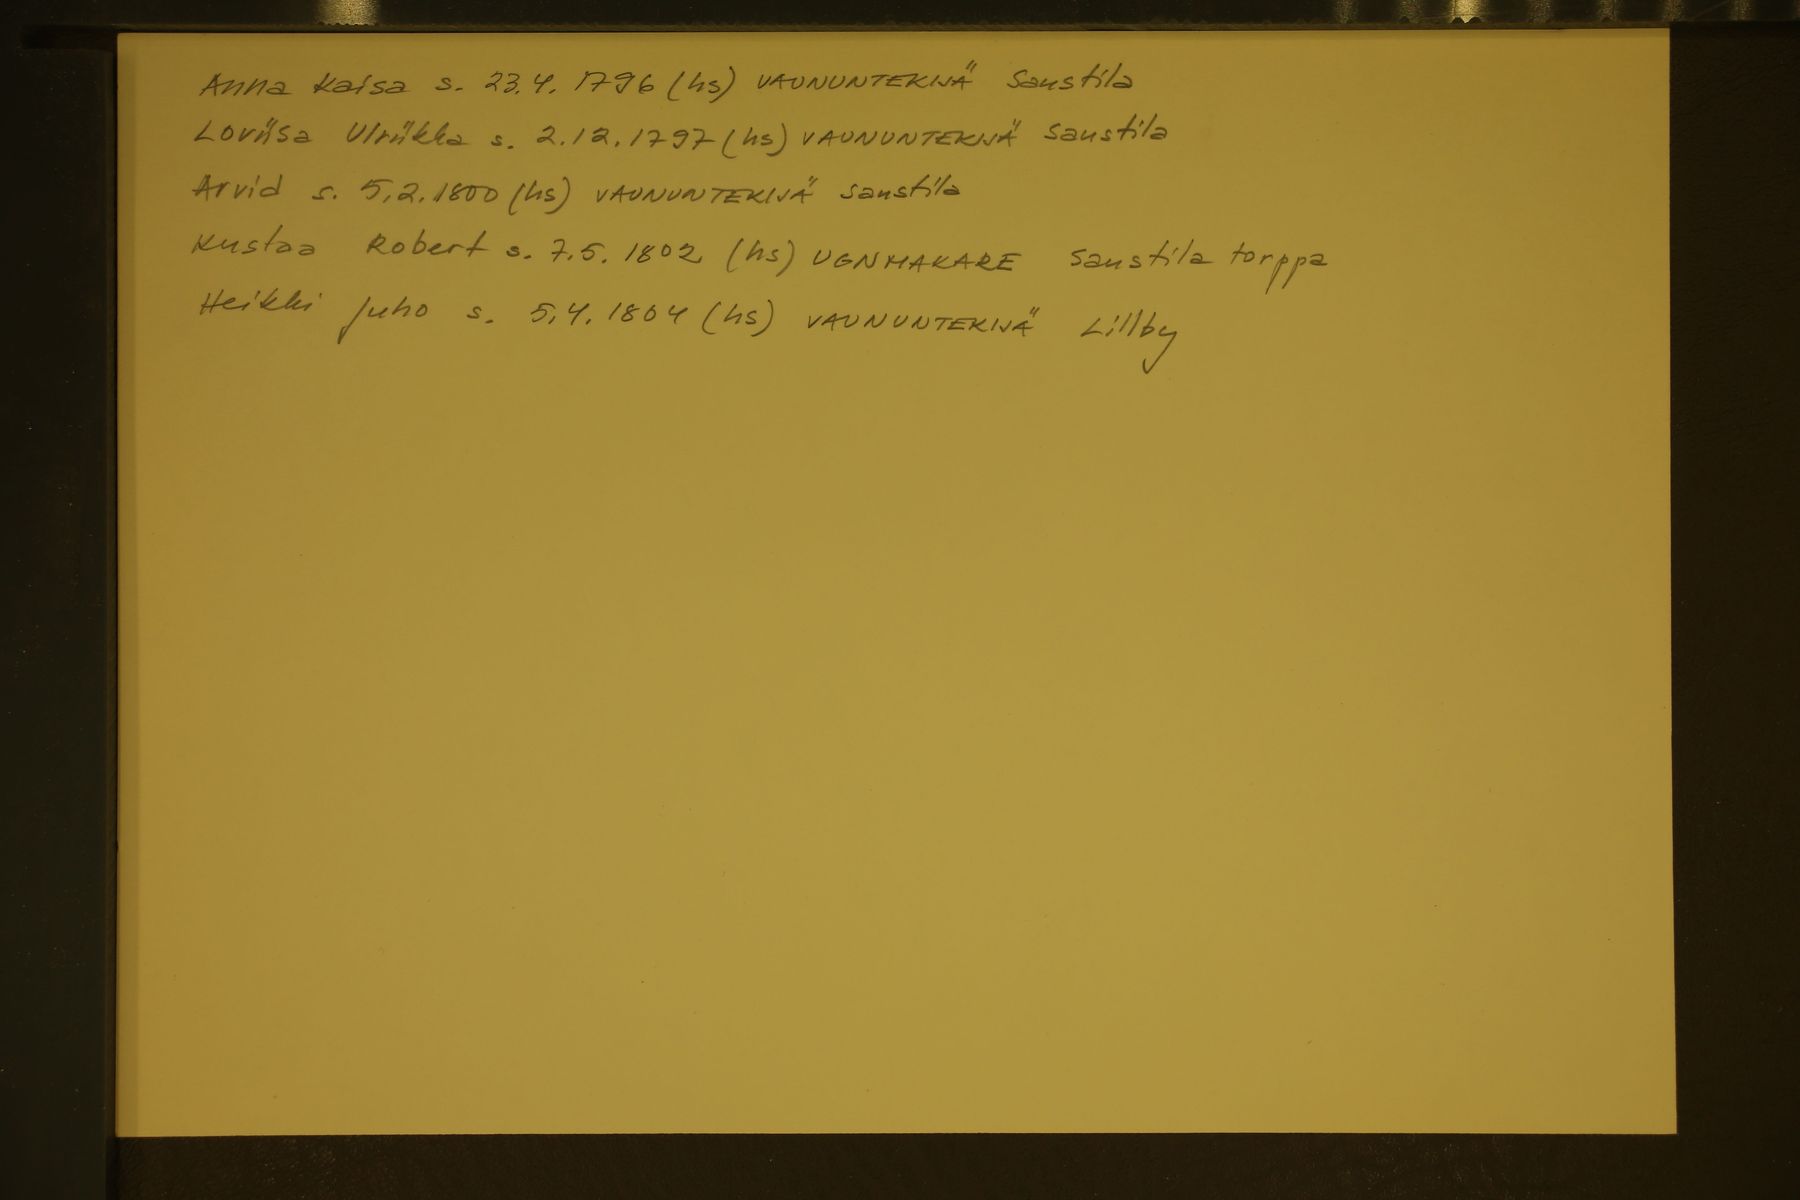 Anna Kaisa s. 23.4. 1796 (hs) VAUNUNTEKIJÄ Saustila
Loviisa Ulriikka s. 2.12.1797 (hs) VAUNUNTEKIJÄ Saustila
Arvid s. 5.2.1800 (hs) VAUNUNTEKIJÄ Saustila
Kustaa Robert s. 7.5. 1802 (hs) UGNMAKARE Saustila torppa
Heikki Juho s. 5.4. 1804 (hs) VAUNUNTEKIJÄ Lillby